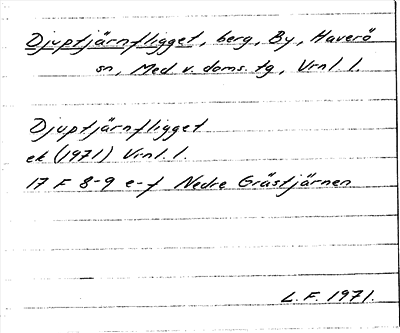 Djuptjärnfligget, berg, By, Haverö
sn, Med. v. doms. tg, Vrnl. l.
Djuptjärnfligget
ek (1971) Vrnl. l.
17 F 8-9 e-f Nedre Grästjärnen
L. F. 1971.